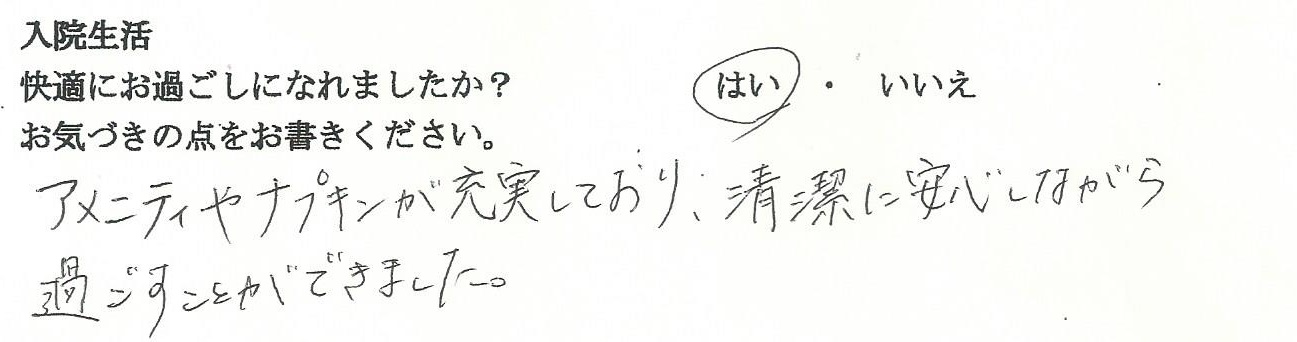 入院生活
快適にお過ごしになれましたか？ はい ・ いいえ
お気づきの点をお書きください。
アメニティやナプキンが充実しており、清潔に安心しながら
過ごすことができました。